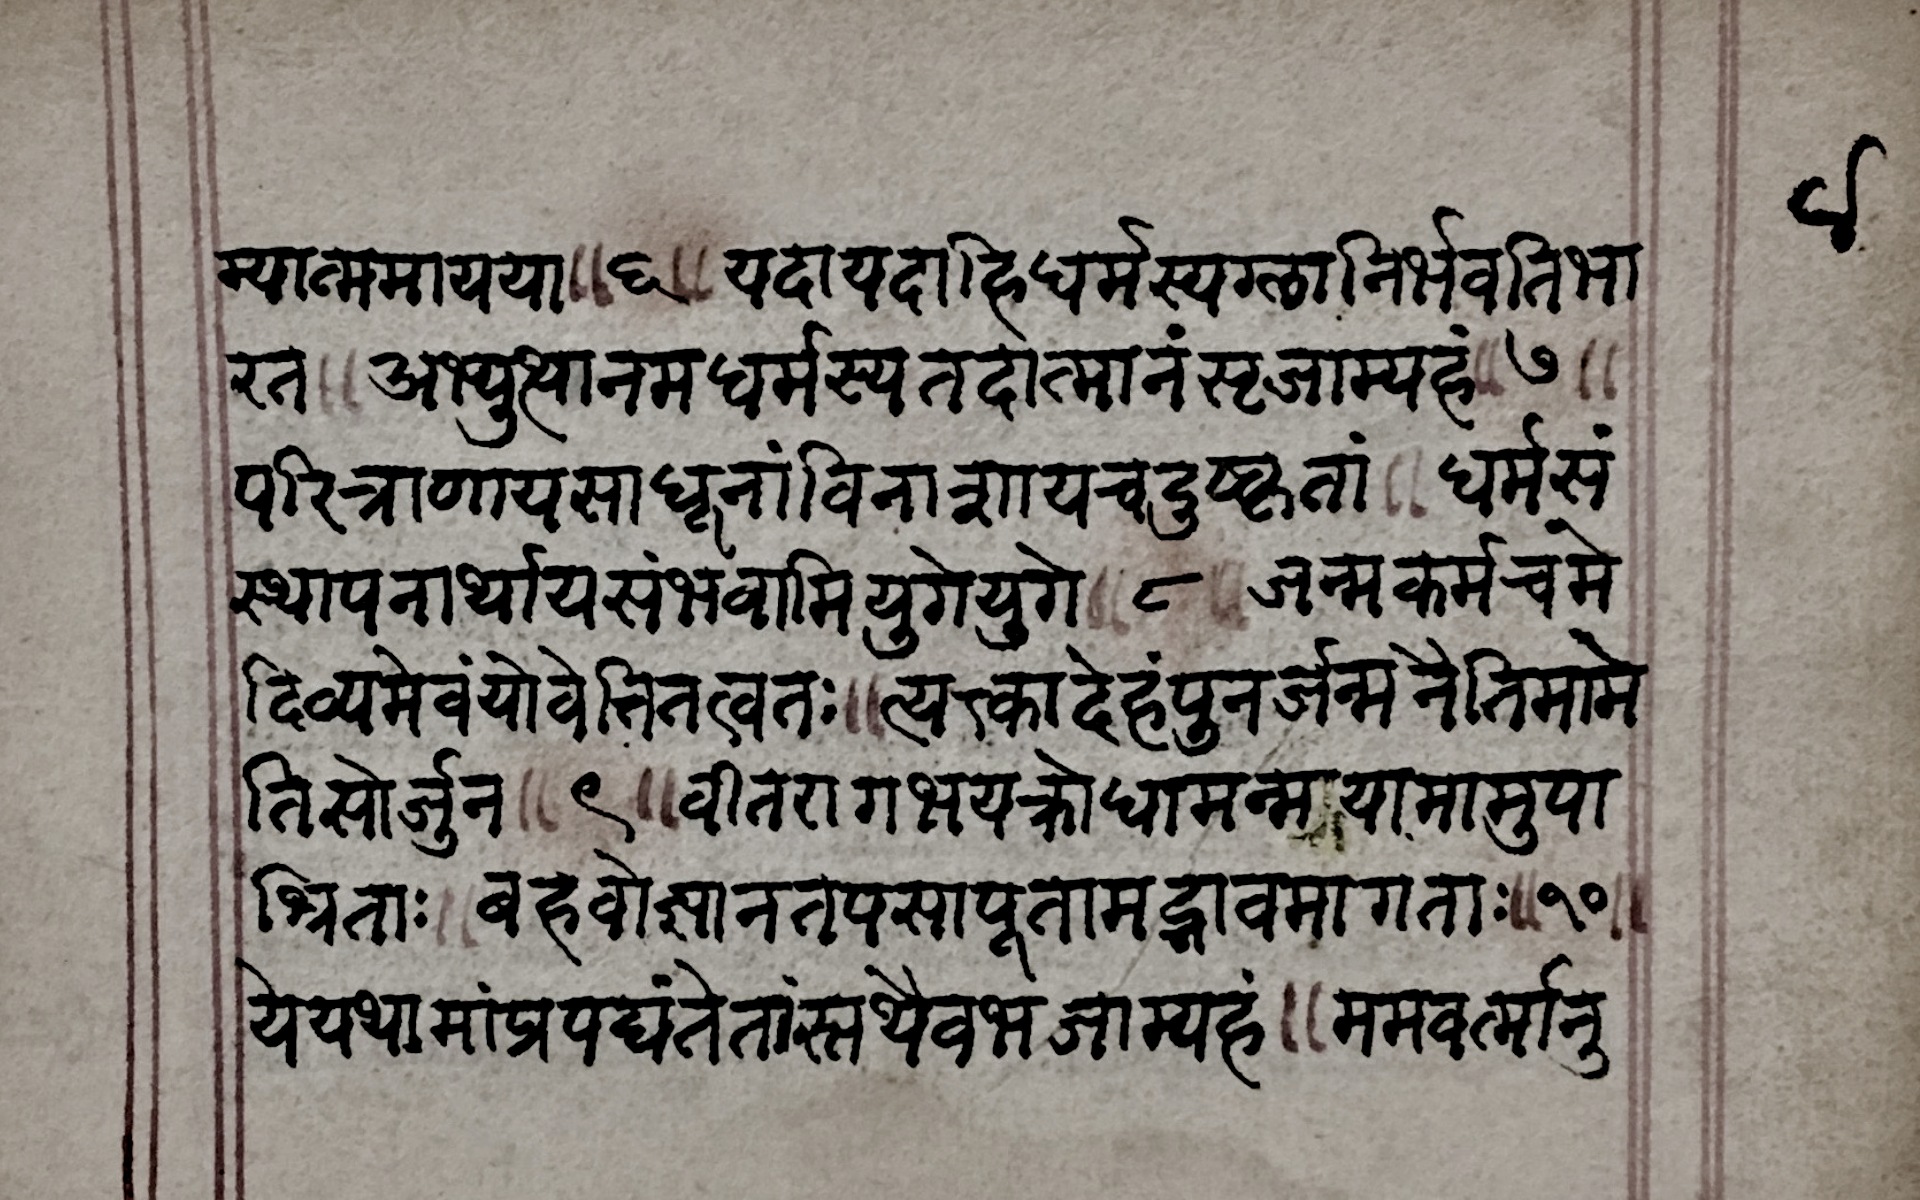 ४
म्यात्ममायया॥६॥ यदायदाहिधर्मस्यग्लानिर्भवतिभा
रत॥ अभ्युत्थानमधर्मस्यतदात्मानंसृजाम्यहं॥७॥
परित्राणायसाधूनांविनाशायचदुष्कृतां॥ धर्मसं
स्थापनार्थायसंभवामियुगेयुगे॥८॥ जन्मकर्मचमे
दिव्यमेवंयोवेत्तितत्वतः॥त्यक्त्कादेहंपुनर्जन्मनैतिमामे
तिसोर्जुन॥९॥वीतरागभयक्रोधामन्मयामामुपा
श्रिताः॥ बहवोज्ञानतपसापूतामद्भावमागताः॥१०॥
येयथामांप्रपद्यंतेतांस्तथैवभजाम्यहं॥ ममवर्त्मानु